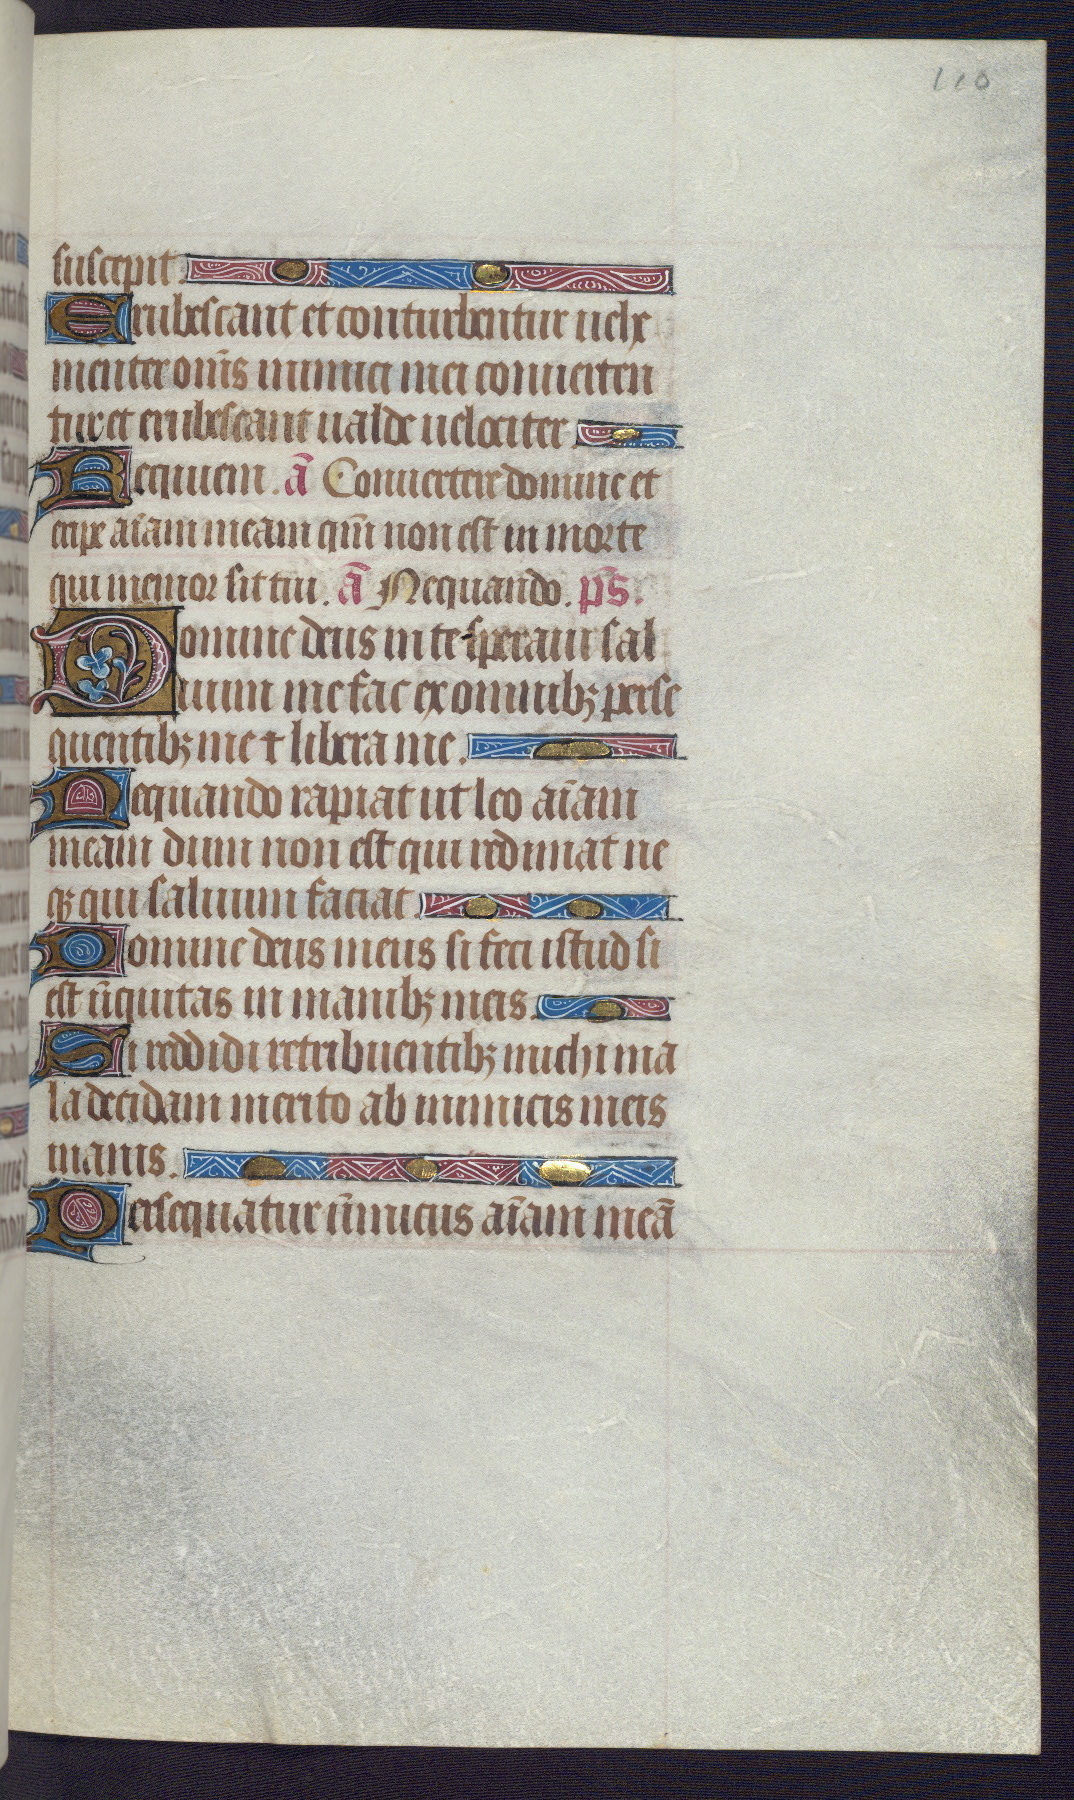 110
suscepit.
Erubescant et conturbentur uehe
menter om̄s inimici mei conuerten
tur et erubescant ualde uelociter.
Requiem. ā Conuertere domine et
eripe aīam meam qm̄ non est in morte
qui memor sit tui. ā Nequando. p̄s.
Domine deus in te speraui sal
uum me fac ex omnibꝫ perse
quentibꝫ me ⁊ libera me.
Nequando rapiat ut leo aīam
meam dum non est qui redimat ne
qꝫ qui saluum faciat.
Domine deus meus si feci istud si
est īiquitas in manibꝫ meis.
Si reddidi retribuentibꝫ michi ma
la decidam merito ab inimicis meis
inanis.
Persequatur īimicus aīam meā